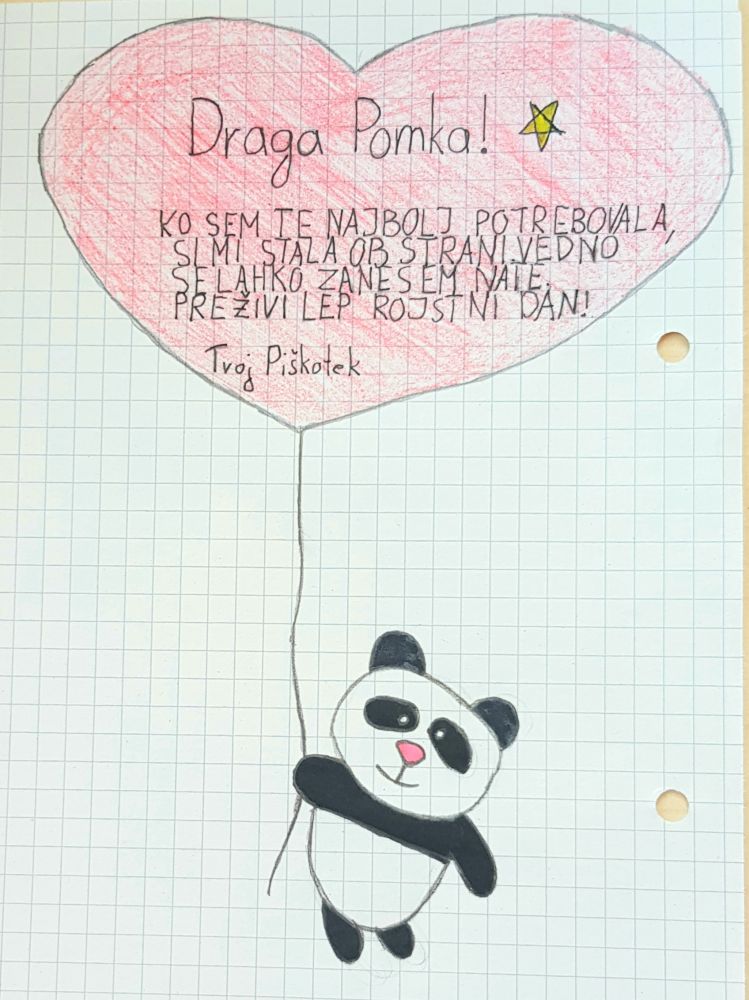 Draga Pomka!
KO SEM TE NAJBOLJ POTREBOVALA,
SI MI STALA OB STRANI.VEDNO
SE LAHKO ZANESEM NATE.
PREŽIVI LEP ROJSTNI DAN!
Tvoj Piškotek